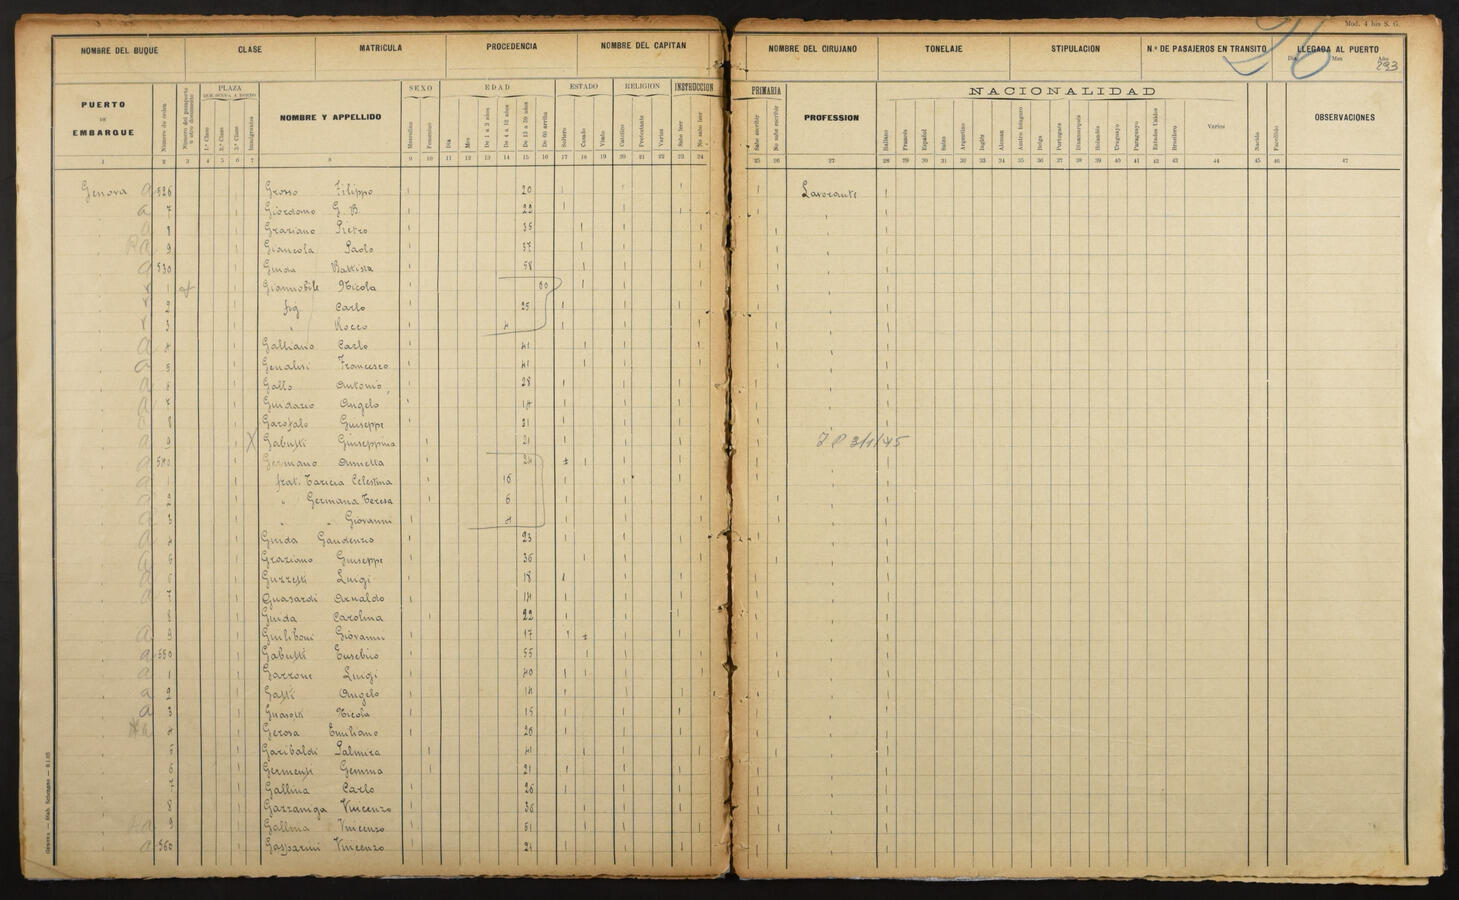 Mod. 4 bis S. G.
NOMBRE DEL BUQUE CLASE MATRICULA PROCEDENCIA NOMBRE DEL CAPITAN NOMBRE DEL CIRUJANO TONELAJE STIPULACION N.º DE PASAJEROS EN TRANSITO LLEGADA AL PUERTO
Dia Mes Año
26
293
PUERTO DE EMBARQUE
Número de orden
Número del pasaporte u otro documento
PLAZA
QUE OCUPA A BORDO
1.ª Clase 2.ª Clase 3.ª Clase Inmigrantes
NOMBRE Y APPELLIDO
SEXO
Masculino Femenino
EDAD
Dia Mes De 1 á 3 años De 4 á 12 años De 13 á 59 años De 60 arriba
ESTADO
Soltero Casado Viudo
RELIGION
Católico Protestante Varias
INSTRUCCION PRIMARIA
Sabe leer No sabe leer Sabe escribir No sabe escribir
PROFESSION
NACIONALIDAD
Italiano Francés Español Suizo Argentino Inglés Aleman Austro húngaro Belga Portugués Dinamarqués Holandés Uruguayo Paraguayo Estados Unidos Brasilero Varios
Nacido Fallecido
OBSERVACIONES
1 2 3 4 5 6 7 8 9 10 11 12 13 14 15 16 17 18 19 20 21 22 23 24 25 26 27 28 29 30 31 32 33 34 35 36 37 38 39 40 41 42 43 44 45 46 47
Genova a 526 Grosso Filippo 20 Lavorante
a 7 Giordomo G. B. 22
a 8 Graziano Pietro 35
a 9 Giancola Paolo 37
a 530 Guida Battista 58
1 Giannobile Nicola 60
2 fig. Carlo 25
3 " Rocco 4
a 4 Galliano Carlo 41
a 5 Genalisi Francesco 41
a 6 Gallo Antonio 28
a 7 Guidazio Angelo 14
8 Garofalo Giuseppe 21
a 9 Gabutti Giuseppina 21
a 540 Germano Annetta 24
1 frat. Taricia Celestina
2 " Germana Teresa 6
3 " " Giovanni 4
a 4 Guida Gaudenzio 23
a 5 Graziano Giuseppe 36
a 6 Guzzetti Luigi 18
a 7 Guasardi Arnaldo 14
8 Guida Carolina 22
a 9 Guiliboni Giovanni 17
a 550 Gabutti Eusebio 55
a 1 Garrone Luigi 40
a 2 Gatti Angelo 14
a 3 Guasotti Nicola 15
4 Gerosa Emiliano 20
5 Garibaldi Palmira 41
6 Germensi Gemma 21
7 Gallina Carlo 26
8 Gazzaniga Vincenzo 36
a 9 Gallina Vincenzo 51
a 560 Gasparini Vincenzo 21